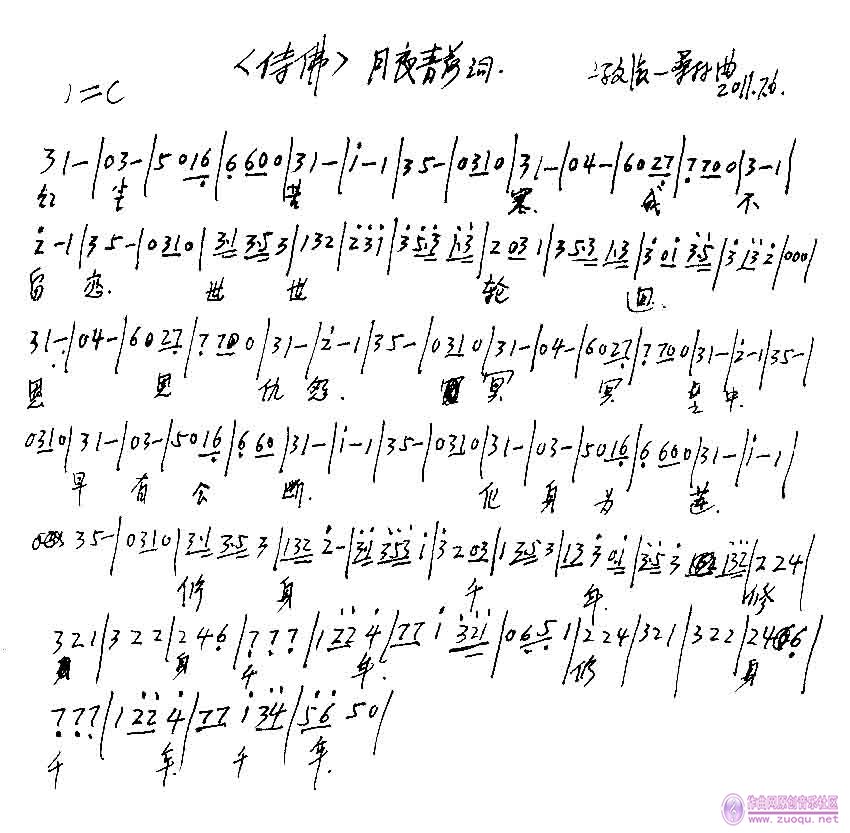 《侍佛》 月夜青荷词.
1=C
2011.7.6.
31-|03-|5016|6600|31-|i-1|35-|0310|31-|04-|6027|7700|3-1|
红 尘 苦 寒. 成 不
2-1|35-|0310|31 353|132|231|3533 13|2031|3533 13|301 35|3132|000|
留 恋. 世 世 轮 回.
31-|04-|6027|7700|31-|2-1|35-|0310|31-|04-|6027|7700|31-|2-1|35-|
恩 恩 仇 怨. 冥 冥 之 中.
0310|31-|03-|5016|660|31-|i-1|35-|0310|31-|03-|5016|6600|31-|i-1|
早 有 公 断. 化 身 为 莲.
35-|0310|31 353|1322-|31 353 1|3203|1353|13301|353 132|224|
修 身 千 年. 修
321|322|246|777|1224|771 321|0651|224|321|322|246|
身 千 年. 修 身
777|1224|77134|5650|
千 年. 千 年.
作曲网原创音乐社区
www.zuoqu.net